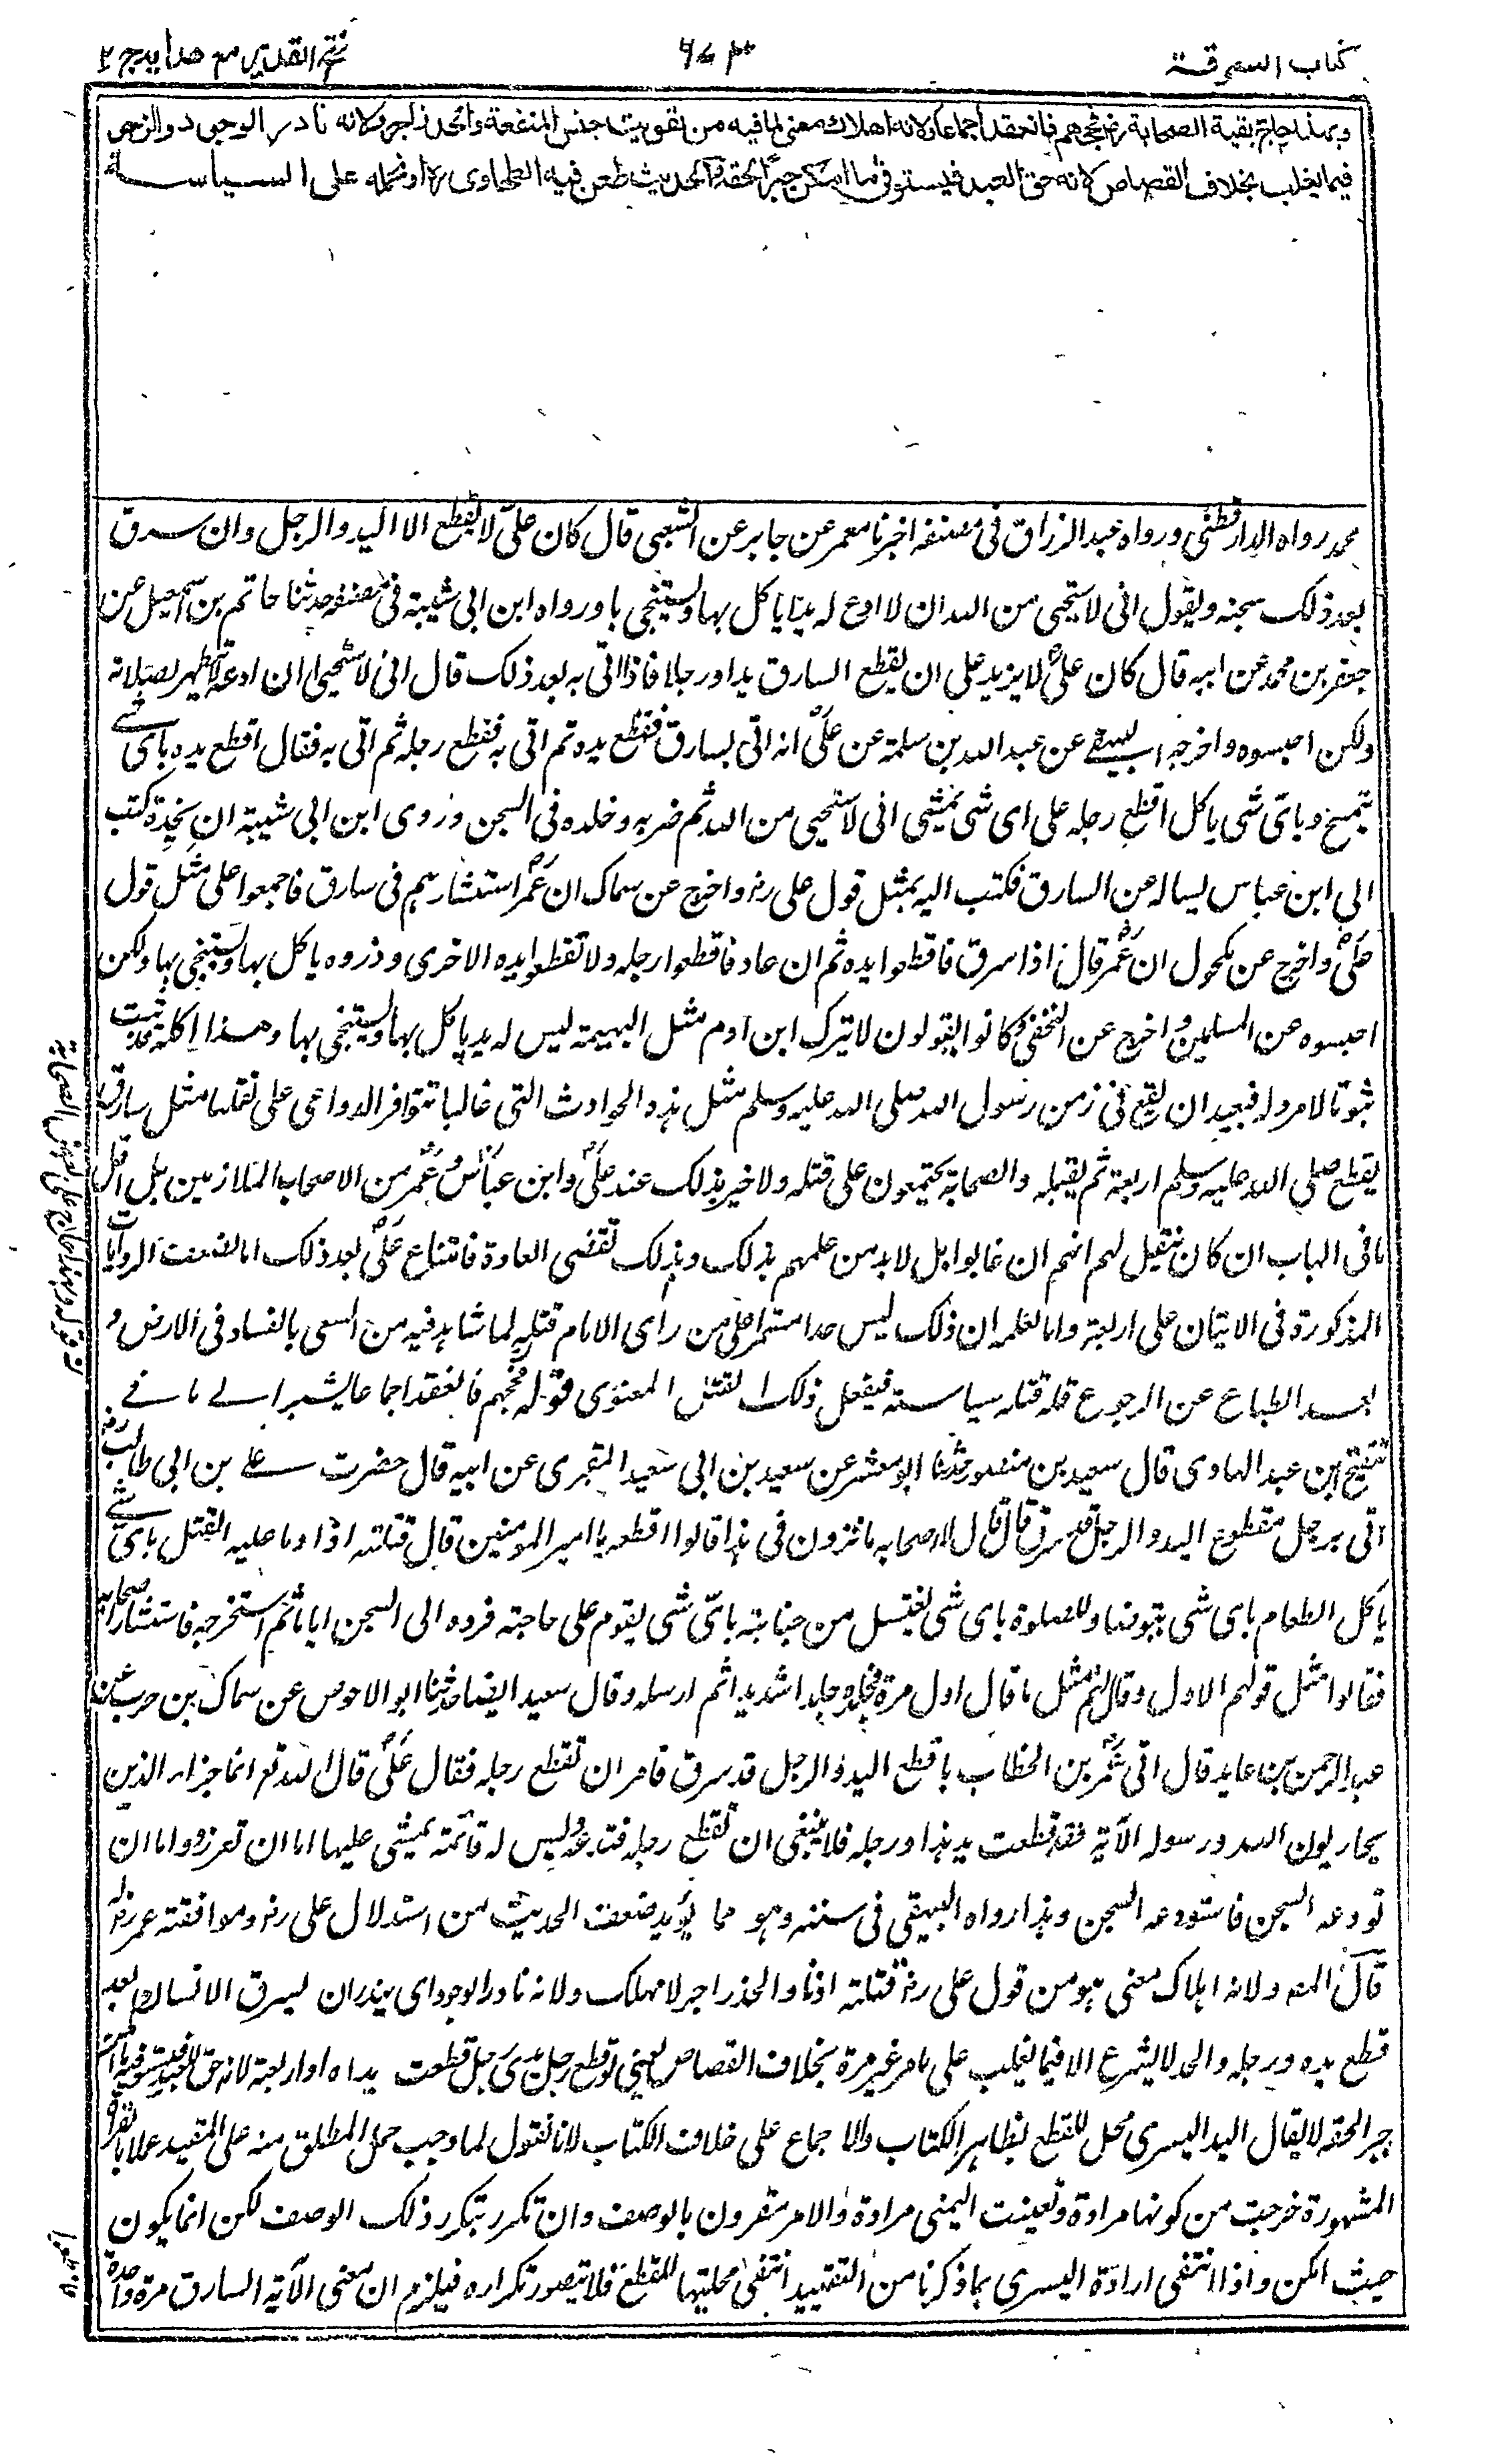 كتاب السرقة
٦٧٣
فتح القدير مع هدايه ج ٢
وبهذا حاج بقية الصحابة رض فحجهم فانعقد اجماعا ولانه اهلاك معنى لما فيه من تفويت جنس المنفعة والحد زاجر ولانه نادر الوجود والزجر
فيما يغلب بخلاف القصاص لانه حق العبد فيستوفى ما امكن جبرا لحقه والحديث طعن فيه الطحاوى ره او نحمله على السياسة
محمد رواه الدارقطنى ورواه عبد الرزاق فى مصنفه اخبرنا معمر عن جابر عن الشعبى قال كان على لا يقطع الا اليد والرجل وان سرق
بعد ذلك سجنه ويقول انى لاستحيى من الله ان لا ادع له يدا ياكل بها ويستنجى بها ورواه ابن ابى شيبة فى مصنفه حدثنا حاتم بن اسمعيل عن
جعفر بن محمد عن ابيه قال كان على لا يزيد على ان يقطع السارق يدا ورجلا فاذا اتى به بعد ذلك قال انى لاستحيى ان ادعه لا يتطهر لصلاته
ولكن احبسوه واخرجه البيهقى عن عبد الله بن سلمة عن على انه اتى بسارق فقطع يده ثم اتى به فقطع رجله ثم اتى به فقال اقطع يده باى شى
يتمسح وباى شى ياكل اقطع رجله على اى شى يمشى انى لاستحيى من الله ثم ضربه وخلده فى السجن وروى ابن ابى شيبة ان نجدة كتب
الى ابن عباس يساله عن السارق فكتب اليه بمثل قول على رض واخرج عن سماك ان عمر استشارهم فى سارق فاجمعوا على مثل قول
على واخرج عن مكحول ان عمر قال اذا سرق فاقطعوا يده ثم ان عاد فاقطعوا رجله ولا تقطعوا يده الاخرى وذروه ياكل بها ويستنجى بها ولكن
احبسوه عن المسلمين واخرج عن النخعى كانوا يقولون لا يترك ابن آدم مثل البهيمة ليس له يد ياكل بها ويستنجى بها وهذا كله قد ثبت
ثبوتا لا مرد له فبعيد ان يقع فى زمن رسول الله صلى الله عليه وسلم مثل هذه الحوادث التى غالبا تتوافر الدواعى على نقلها مثل سارق
يقطع صلى الله عليه وسلم اربعة ثم يقتله والصحابة يجتمعون على قتله ولا خبر بذلك عند على وابن عباس وعمر من الاصحاب الملازمين بل اقل
ما فى الباب ان كان ينقل لهم انهم ان غابوا بل لا بد من علمهم بذلك وبذلك تقضى العادة فامتناع على بعد ذلك اما لضعف الروايات
المذكورة فى الاتيان على اربعة واما لعلمه ان ذلك ليس حدا مستمرا على من راى الامام قتله لما شاهد فيه من السعى بالفساد فى الارض و
بعد الطباع عن الرجوع فله قتله سياسة فيفعل ذلك القتل المعنوى قوله فحجهم فانعقد اجماعا يشير الى ما فى
تنقيح ابن عبد الهادى قال سعيد بن منصور حدثنا ابو معشر عن سعيد بن ابى سعيد المقبرى عن ابيه قال حضرت على بن ابى طالب رض
اتى برجل مقطوع اليد والرجل قد سرق فقال لاصحابه ما ترون فى هذا قالوا اقطعه يا امير المومنين قال قتلته اذا وما عليه القتل باى شى
ياكل الطعام باى شى يتوضا للصلوة باى شى يغتسل من جنابته باى شى يقوم على حاجته فرده الى السجن اياما ثم استخرجه فاستشار اصحابه
فقالوا مثل قولهم الاول وقال لهم مثل ما قال اول مرة فجلده جلدا شديدا ثم ارسله وقال سعيد ايضا حدثنا ابو الاحوص عن سماك بن حرب عن
عبد الرحمن بن عايد قال اتى عمر بن الخطاب باقطع اليد والرجل قد سرق فامر ان تقطع رجله فقال على قال الله تعر انما جزاء الذين
يحاربون الله ورسوله الآية فقد قطعت يد هذا ورجله فلا ينبغى ان تقطع رجله فتدعه وليس له قائمة يمشى عليها اما ان تعزره واما ان
تودعه السجن فاستودعه السجن وهذا رواه البيهقى فى سننه وهو مما يؤيد ضعف الحديث من استدلال على رض وموافقة عمر له
قال المصـ ولانه اهلاك معنى هو من قول على رض قتلته اذا والحد زاجر لا مهلك ولانه نادر الوجود اى يندر ان يسرق الانسان بعد
قطع يده ورجله والحد لا يشرع الا فيما يغلب على ما مر غير مرة بخلاف القصاص يعنى لو قطع رجل يدى رجل قطعت يداه او اربعة لانه حق العبد فيستوفيه ما امكن
جبرا لحقه لا يقال اليد اليسرى محل للقطع بظاهر الكتاب والاجماع على خلاف الكتاب لانا نقول لما وجب حمل المطلق منه على المقيد عملا بالقراءة
المشهورة خرجت من كونها مرادة وتعينت اليمنى مرادة والامر المقرون بالوصف وان تكرر بتكرر ذلك الوصف لكن انما يكون
حيث امكن واذا انتفى ارادة اليسرى بما ذكرنا من التقييد انتفى محليتها للقطع فلا يتصور تكراره فيلزم ان معنى الآية السارق مرة واحدة